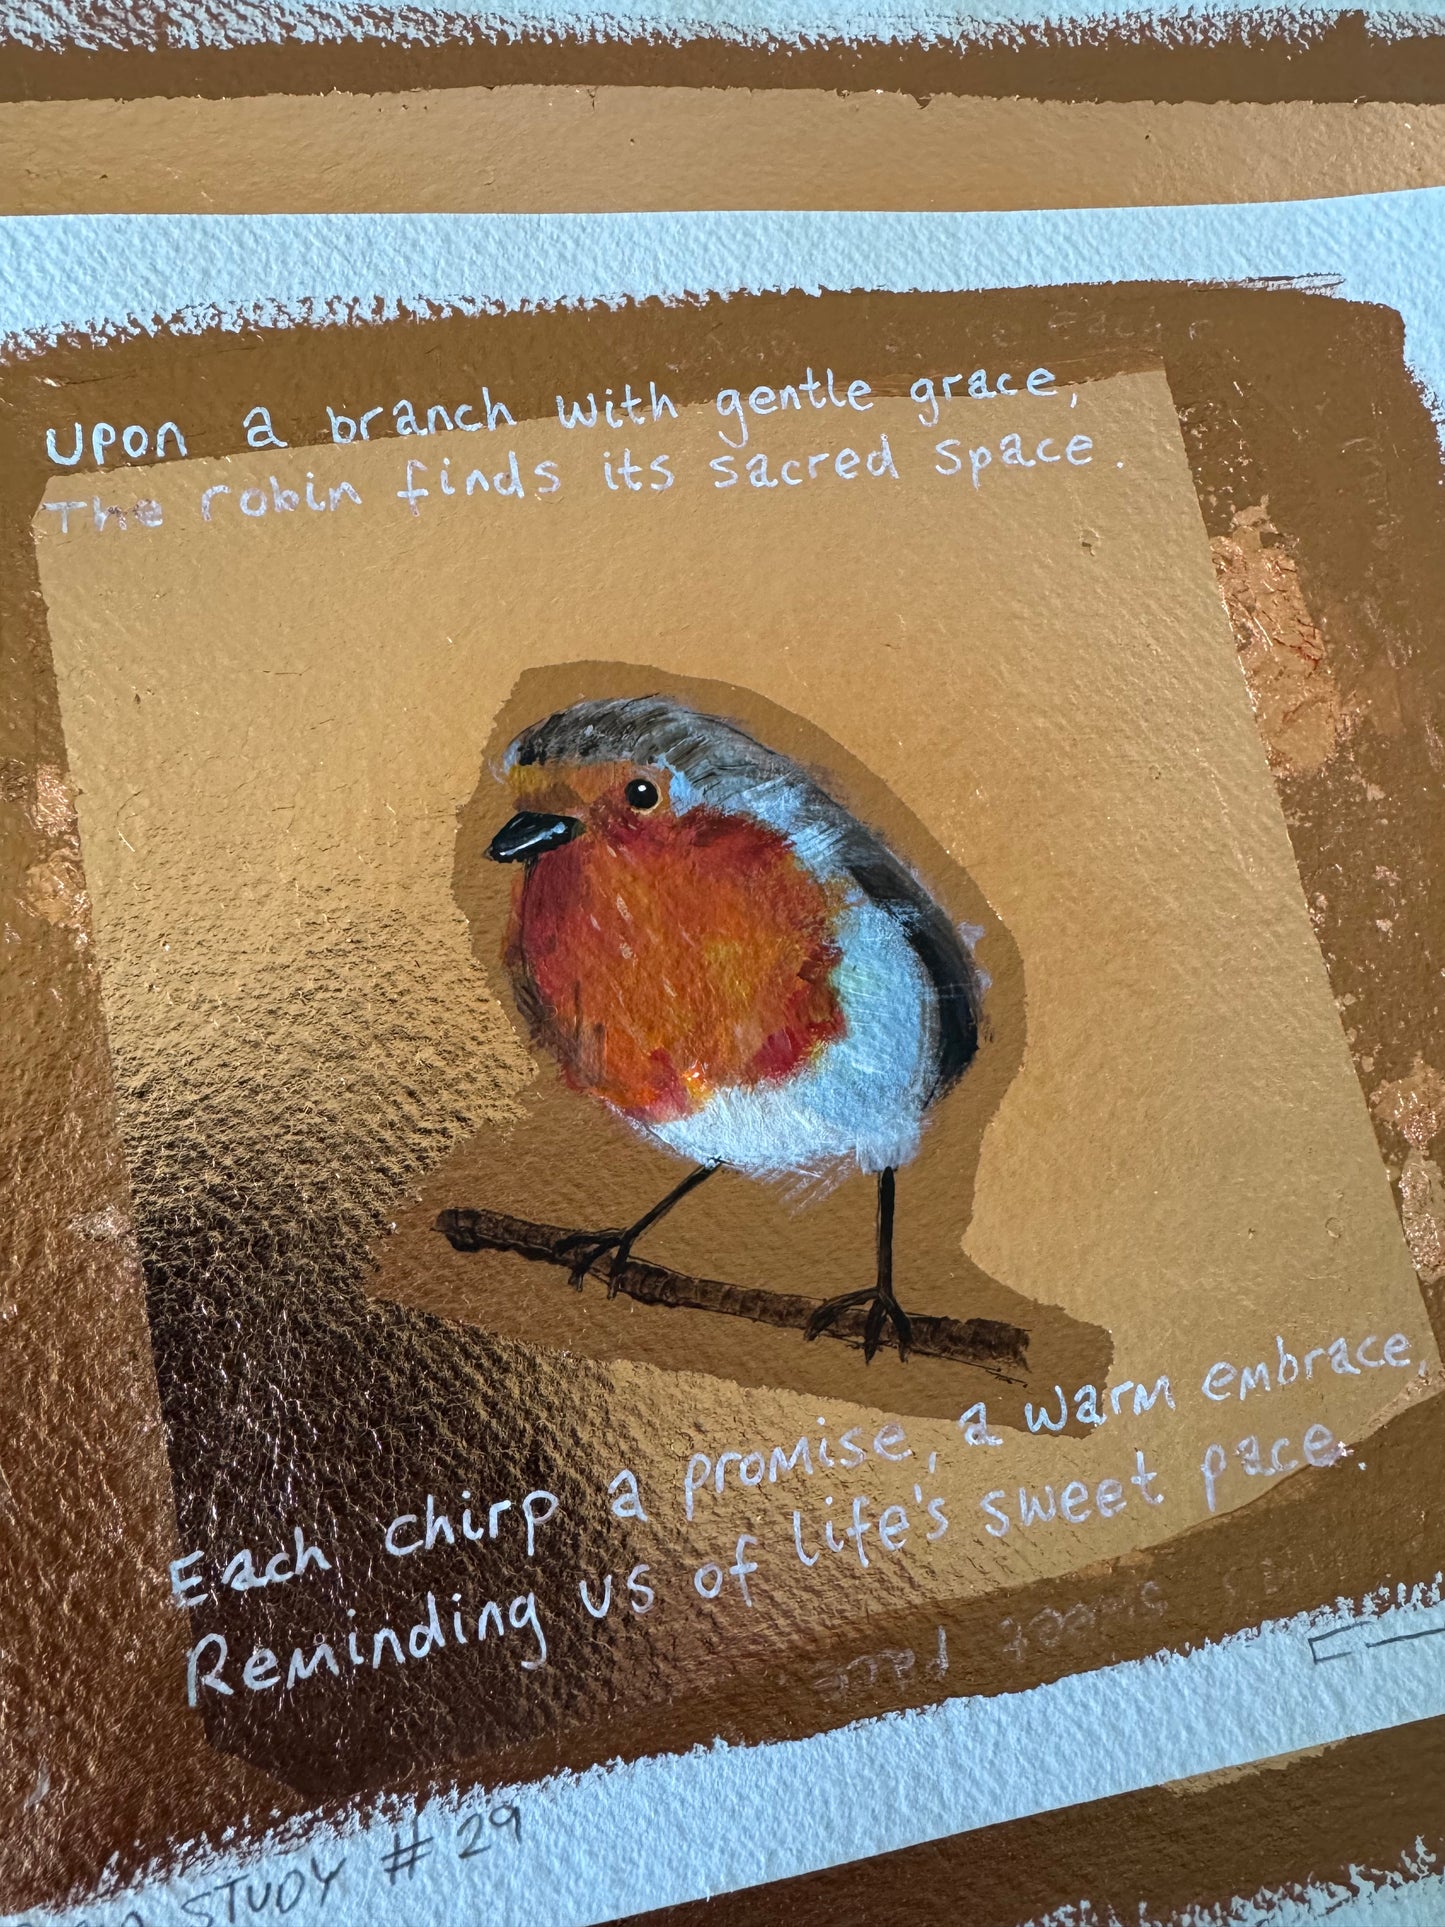 Upon a branch with gentle grace,
The robin finds its sacred space.
Each chirp a promise, a warm embrace,
Reminding us of life's sweet pace.
STUDY #29